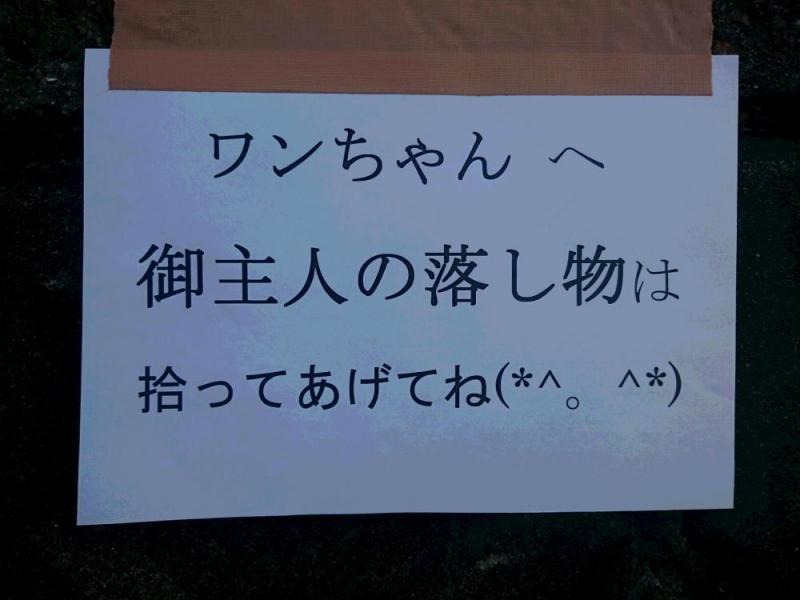 ワンちゃん へ
御主人の落し物は
拾ってあげてね(*^。^*)